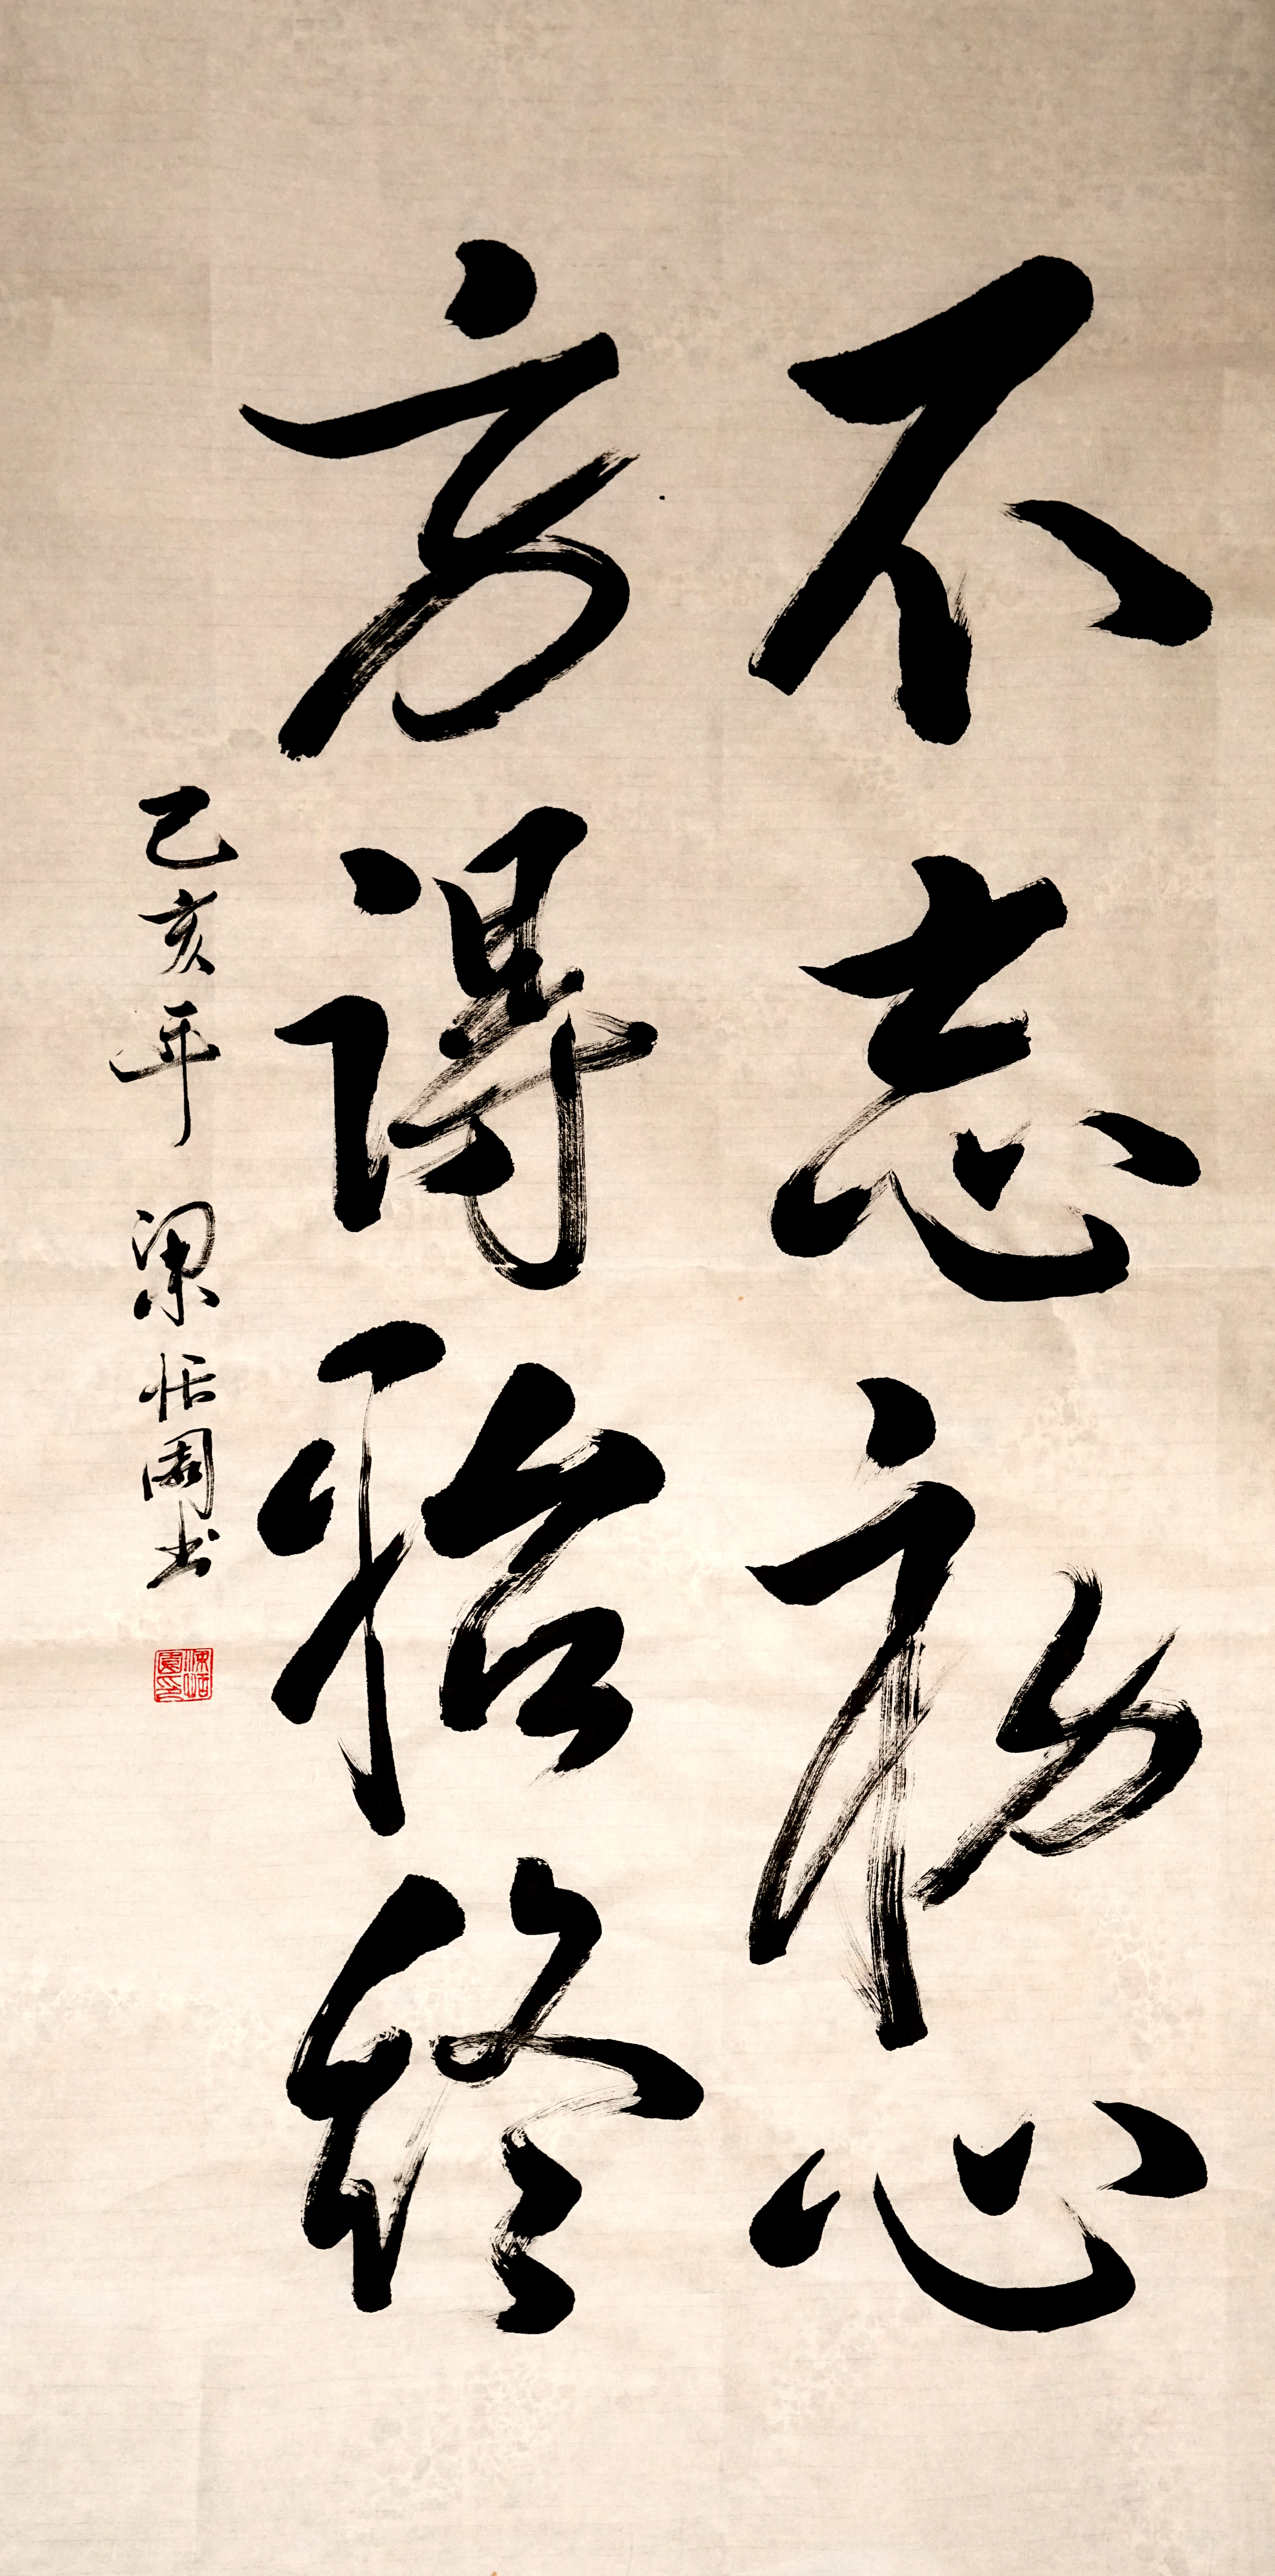 不忘初心
方得始終
己亥年 梁恬園书